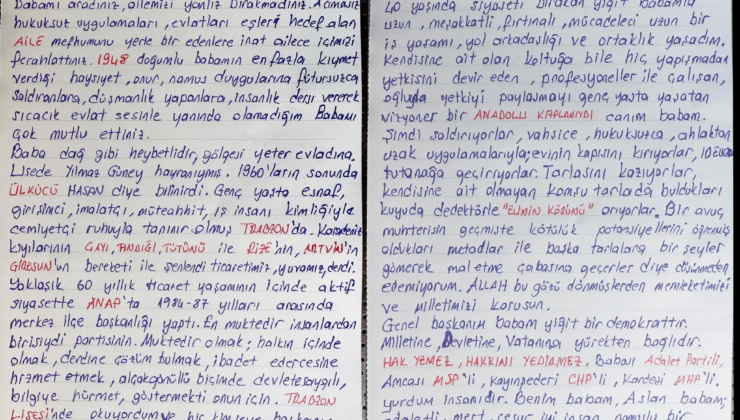 Babamı aradınız, ailemizi yalnız bırakmadınız. Acımasız
hukuksuz uygulamaları, evlatları eşleri hedef alan
AİLE mefhumunu yerle bir edenlere inat ailece içimizi
ferahlattınız. 1948 doğumlu babamın en fazla kıymet
verdiği haysiyet, onur, namus duygularına fütursuzca
saldıranlara, düşmanlık yapanlara, insanlık dersi vererek
sıcacık evlat sesinle yanında olamadığım Babamı
çok mutlu ettiniz.
Baba dağ gibi heybetlidir, gölgesi yeter evladına.
Lisede Yılmaz Güney hayranıymış. 1960'ların sonunda
ÜLKÜCÜ HASAN diye bilinirdi. Genç yaşta esnaf,
girişimci, imalatçı, müteahhit, iş insanı kimliğiyle
cemiyetçi ruhuyla tanınır olmuş TRABZON'da. Karadeniz
kıyılarının ÇAYI, FINDIĞI, TÜTÜNÜ ile RİZE'nin, ARTVİN'in
GİRESUN'un bereketi ile şenlendi ticaretimiz, yuvamız, derdi.
Yaklaşık 60 yıllık ticaret yaşamının içinde aktif
siyasette ANAP'ta 1984-87 yılları arasında
merkez ilçe başkanlığı yaptı. En muktedir insanlardan
birisiydi partisinin. Muktedir olmak; halkın içinde
olmak, derdine çözüm bulmak, ibadet edercesine
hizmet etmek, alçakgönüllü biçimde devlete saygılı,
bilgiye hürmet, göstermekti onun için. TRABZON
LİSESİ'nde okuyordum ve hiç kimseye
40 yaşında siyaseti bırakan yiğit babamla
uzun, meşakkatli, fırtınalı, mücadeleci uzun bir
iş yaşamı, yol arkadaşlığı ve ortaklık yaşadım.
Kendisine ait olan koltuğa bile hiç yapışmadan
yetkisini devir eden, profesyoneller ile çalışan,
oğluyla yetkiyi paylaşmayı genç yaşta yaşatan
vizyoner bir ANADOLU KAPLANIYDI canım babam.
Şimdi saldırıyorlar, vahşice, hukuksuzca, ahlaktan
uzak uygulamalarıyla; evinin kapısını kırıyorlar,
tutanağa geçiriyorlar. Tarlasını kazıyorlar,
kendisine ait olmayan komşu tarlada buldukları
kuyuda dedektörle "ELİMİN KÖRÜNÜ" arıyorlar. Bir avuç
muhterisin geçmişte kötülük potansiyellerini öğrenmiş
oldukları metodlar ile başka tarlalara bir şeyler
gömerek mal etme çabasına geçerler diye düşünmeden
edemiyorum. ALLAH bu gözü dönmüşlerden memleketimizi
ve milletimizi korusun.
Genel başkanım babam yiğit bir demokrattır.
Milletine, Devletine, Vatanına yürekten bağlıdır.
HAK YEMEZ, HAKKINI YEDİRMEZ. Babası Adalet Partili,
Amcası MSP'li, kayınpederi CHP'li, Kardeşi MHP'li.
yurdum insanıdır. Benim babam, Aslan babam;
adaletli, mert, cesur, iyi insan, namuslu bir